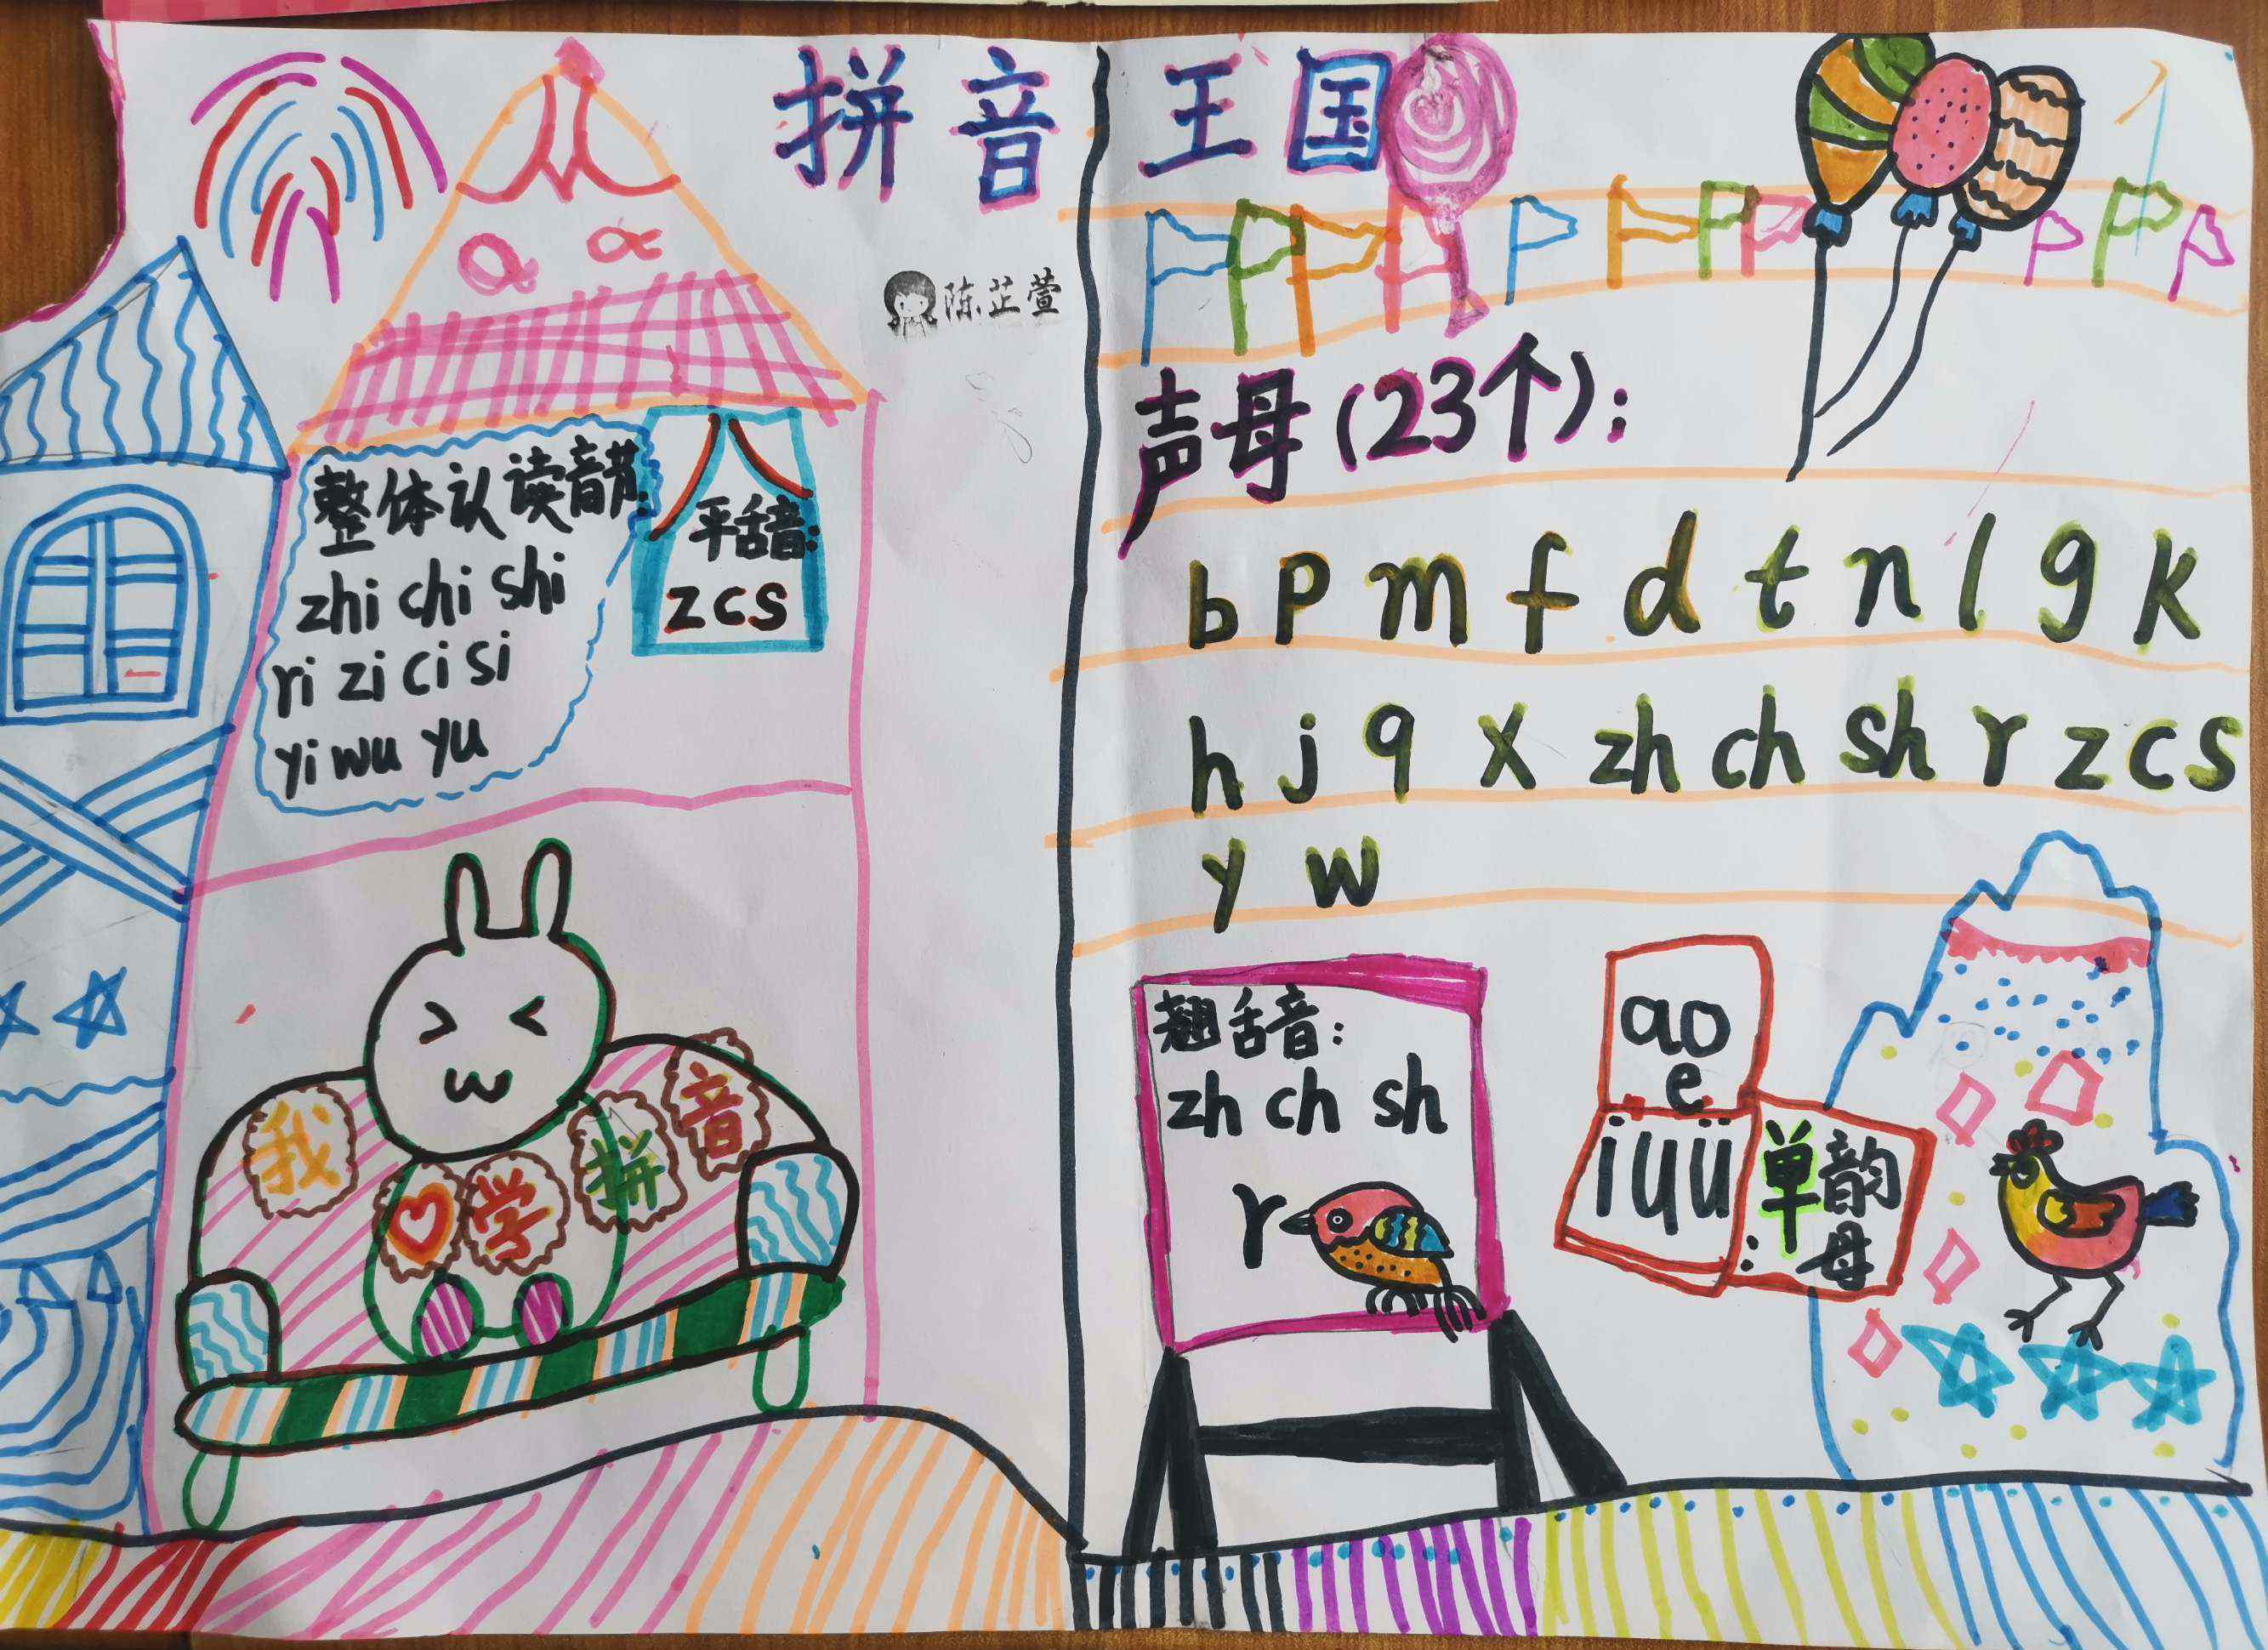 拼音王国
陈芷萱
整体认读音节:
zhi chi shi
ri zi ci si
yi wu yu
平舌音:
z c s
我
学
拼
音
声母(23个):
b p m f d t n l g k
h j q x zh ch sh r z c s
y w
翘舌音:
zh ch sh
r
a o
e
i u ü
单韵
母: